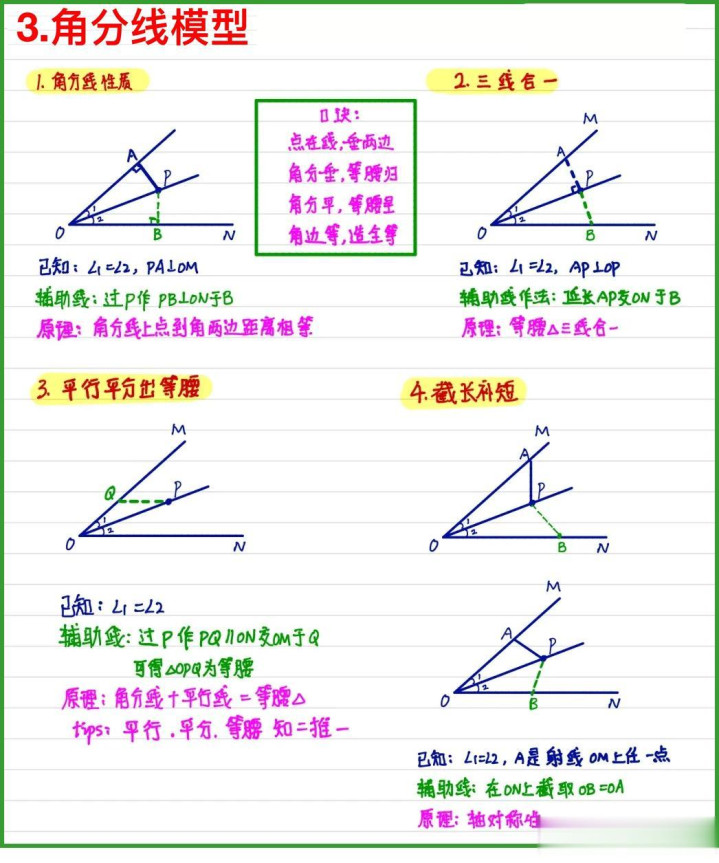 3.角分线模型
1. 角分线性质
A
P
1
2
O
B
N
已知：∠1=∠2，PA⊥OM
辅助线：过P作 PB⊥ON于B
原理：角分线上点到角两边距离相等
口诀：
点在线，垂两边
角分垂，等腰归
角分平，等腰呈
角边等，造全等
2. 三线合一
M
A
P
1
2
O
B
N
已知：∠1=∠2，AP⊥OP
辅助线作法：延长AP交ON于B
原理：等腰△三线合一
3. 平行平分出等腰
M
Q
P
1
2
O
N
已知：∠1=∠2
辅助线：过P作PQ∥ON交OM于Q
可得△OPQ为等腰
原理：角分线+平行线=等腰△
tips：平行.平分.等腰 知二推一
4.截长补短
M
A
P
1
2
O
B
N
M
A
P
1
2
O
B
N
已知：∠1=∠2，A是射线OM上任一点
辅助线：在ON上截取OB=OA
原理：轴对称性